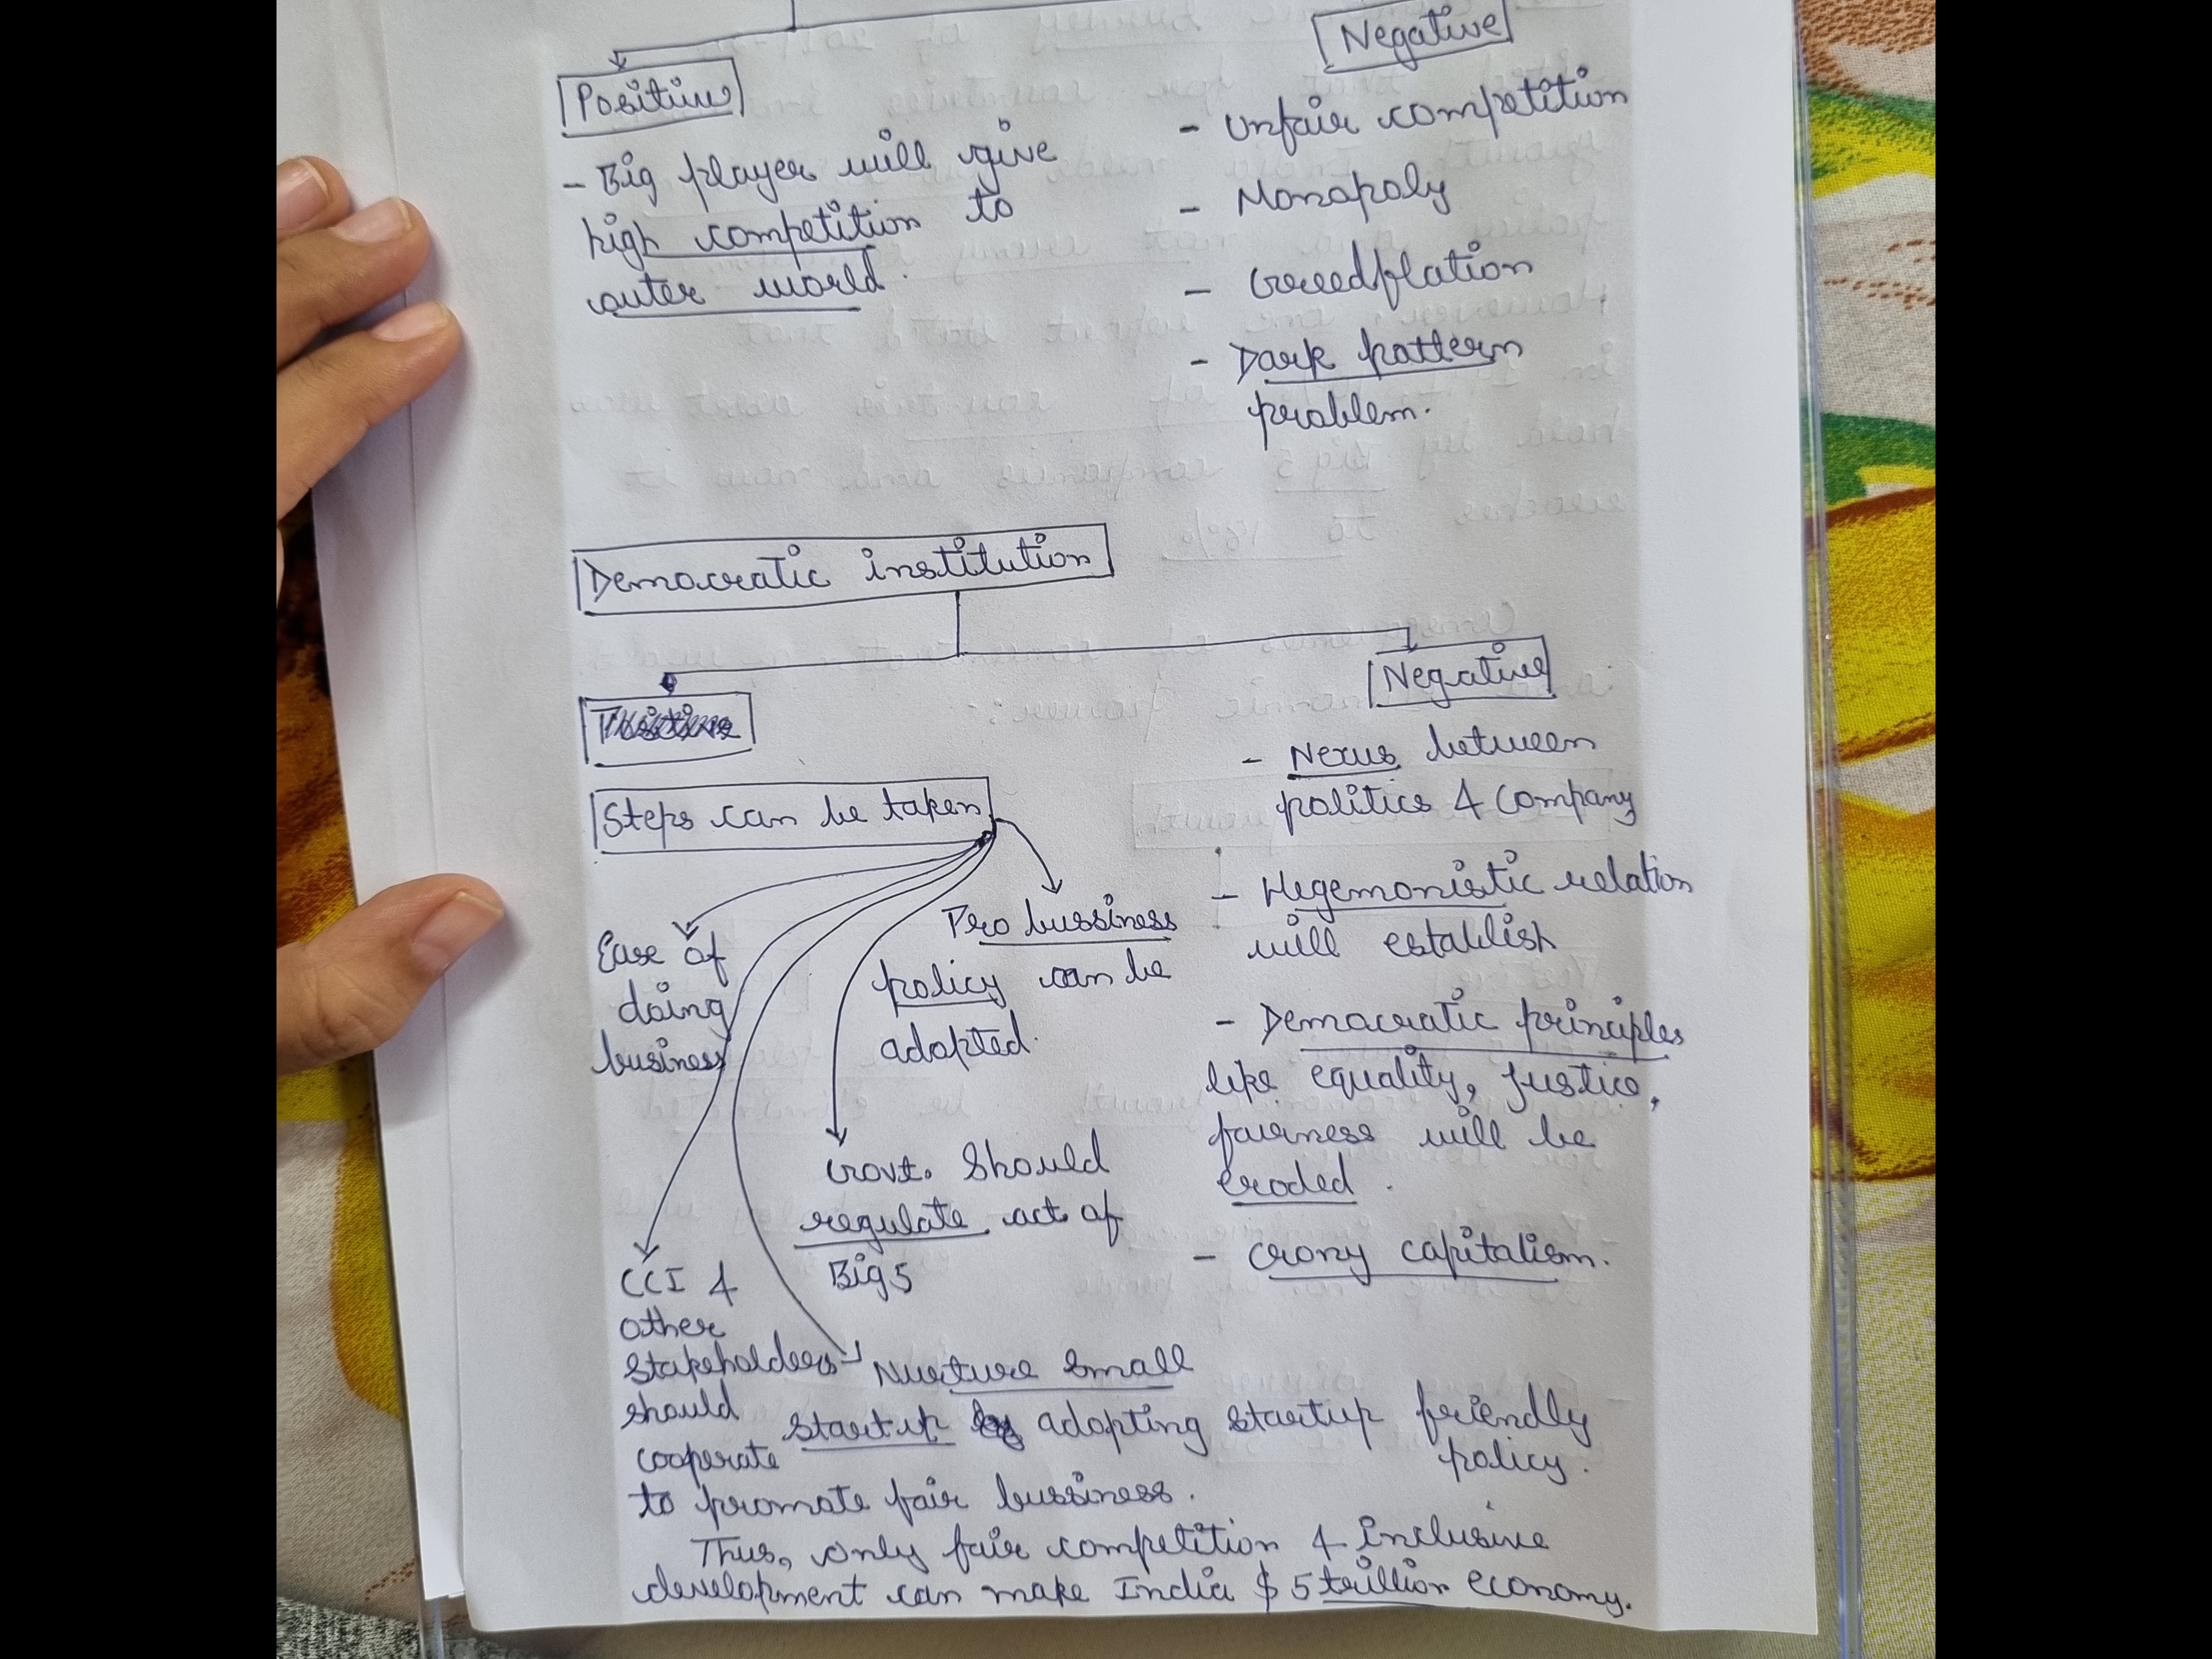 Positive
- Big player will give
high competition to
outer world.
Negative
- Unfair competition
- Monopoly
- Greedflation
- Dark pattern
problem.
Democratic institution
Negative
- Nexus between
politics & company
- Hegemonistic relation
will establish
- Democratic principles
like equality, justice,
fairness will be
eroded.
- Crony capitalism.
Steps can be taken
Ease of
doing
business
Pro bussiness
policy can be
adopted.
Govt. should
regulate act of
Big 5
CCI &
other
stakeholders
should
cooperate
to promote fair bussiness.
Nurture small
startup by adopting startup friendly
policy.
Thus, only fair competition & inclusive
development can make India $ 5 trillion economy.